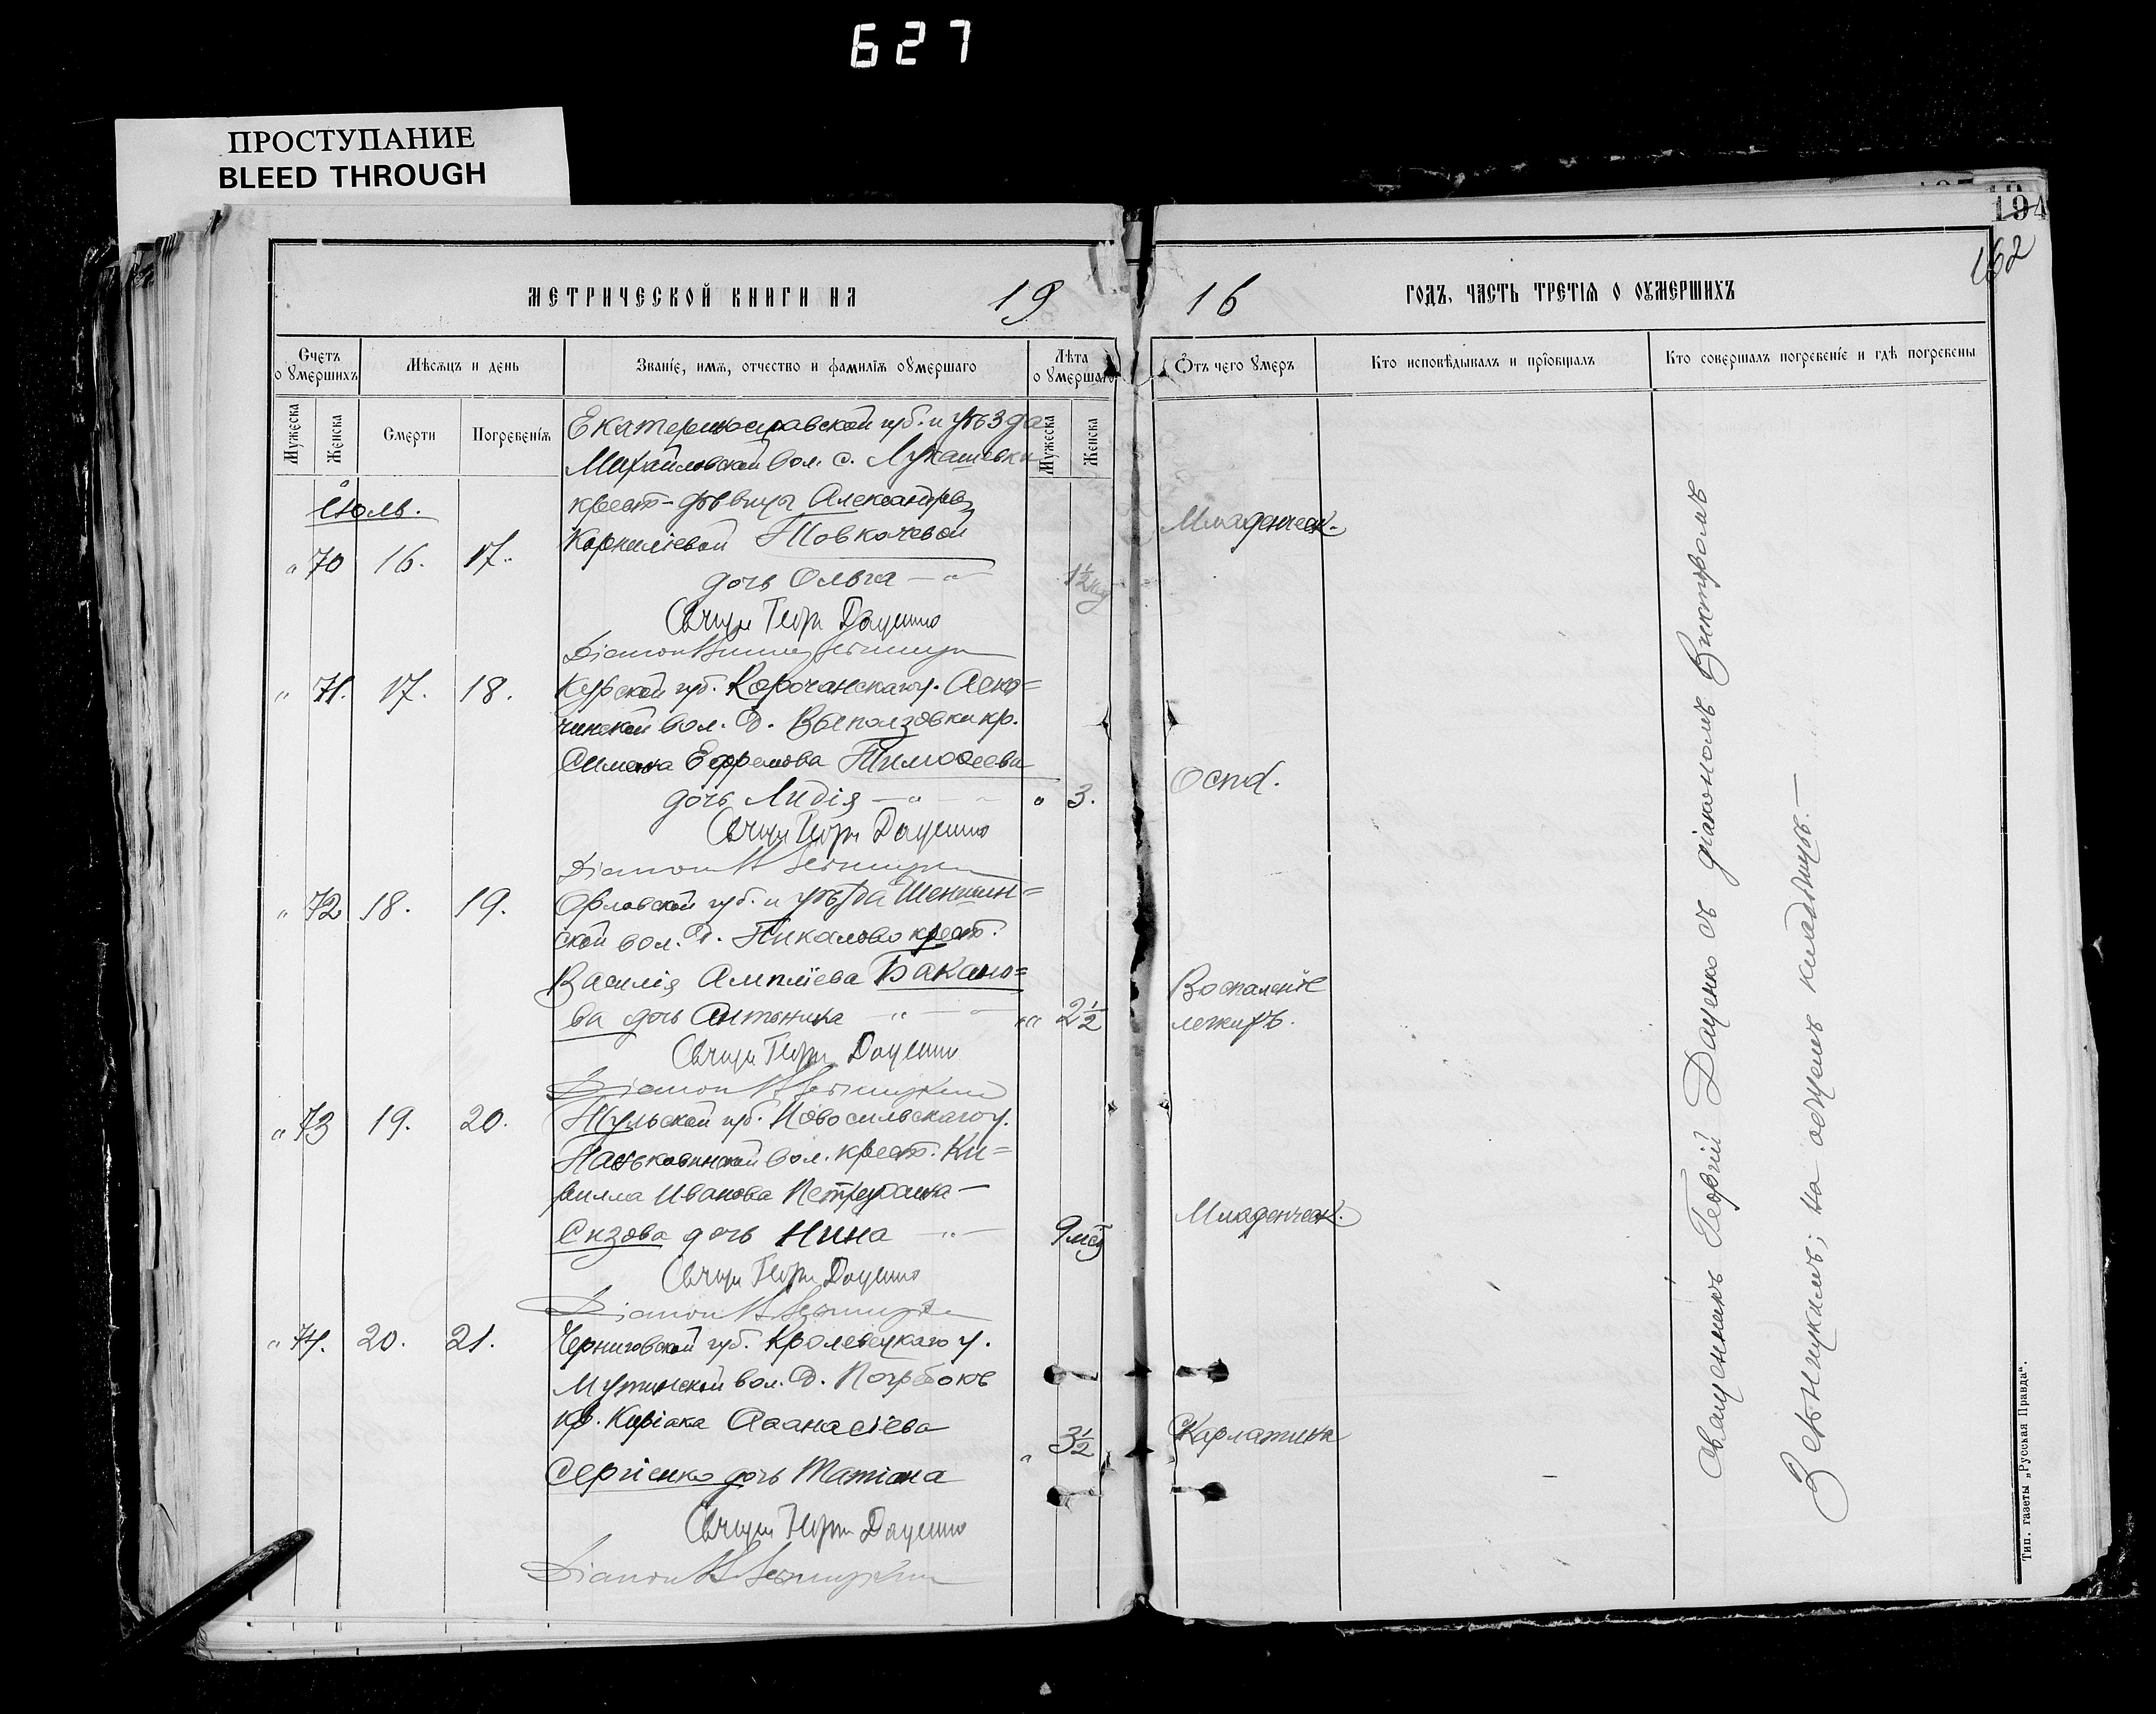 627
ПРОСТУПАНИЕ
BLEED THROUGH
194
162
МЕТРИЧЕСКОЙ КНИГИ НА 19
16 ГОДЪ, ЧАСТЬ ТРЕТІЯ О ОУМЕРШИХЪ
Счетъ оумершихъ
Мѣсяцъ и день
Званіе, имя, отчество и фамилія оумершаго
Лѣта оумершаго
Отъ чего умеръ
Кто исповѣдывалъ и пріобщалъ
Кто совершалъ погребеніе и гдѣ погребены
Мужеска
Женска
Смерти
Погребенія
Мужеска
Женска
Екатеринославской губ. и уѣзда
Михайловской вол. с. Лукашевки
Іюль.
крест-дѣвицы Александры
Корниліевой Товкачевой
Младенческ.
" 70 16. 17.
дочь Ольга — " 1½
Свящ Георг Даценко
Діаконъ
" 71. 17. 18.
Курской губ. Корочанскаго у.
чинской вол. д. Выползовки кр.
Симеона Ефремова Тимоѳеева
дочь Лидія — " " 3.
Оспа.
Свящ Георг Даценко
Діаконъ В
" 72 18. 19.
Орловской губ. и уѣзда Шеншин=
ской вол. д. Пикалово крест.
Василія Амплїева Бакано=
ва дочь Антонина — " — "" 2½
Воспаленіе
легкихъ.
Свящ Георг Даценко
Діаконъ В
" 73 19. 20.
Тульской губ. Новосильскаго у.
вол. крест. Ки=
рилла Иванова
Сизова дочь Нина — " — 9 мсц
Младенческ.
Свящ Георг Даценко
Діаконъ В
" 74. 20. 21.
Черниговской губ. Кролевецкаго у.
Мутинской вол. д. Погребокъ
кр. Киріака Аѳанасіева
Сергіенко дочь Татіана
" 3½
Скарлатина
Свящ Георг Даценко
Діаконъ В
Священникъ Георгій Даценко съ діакономъ Викторомъ
на общемъ кладбищѣ. —
Тип. газеты „Русская Правда“.